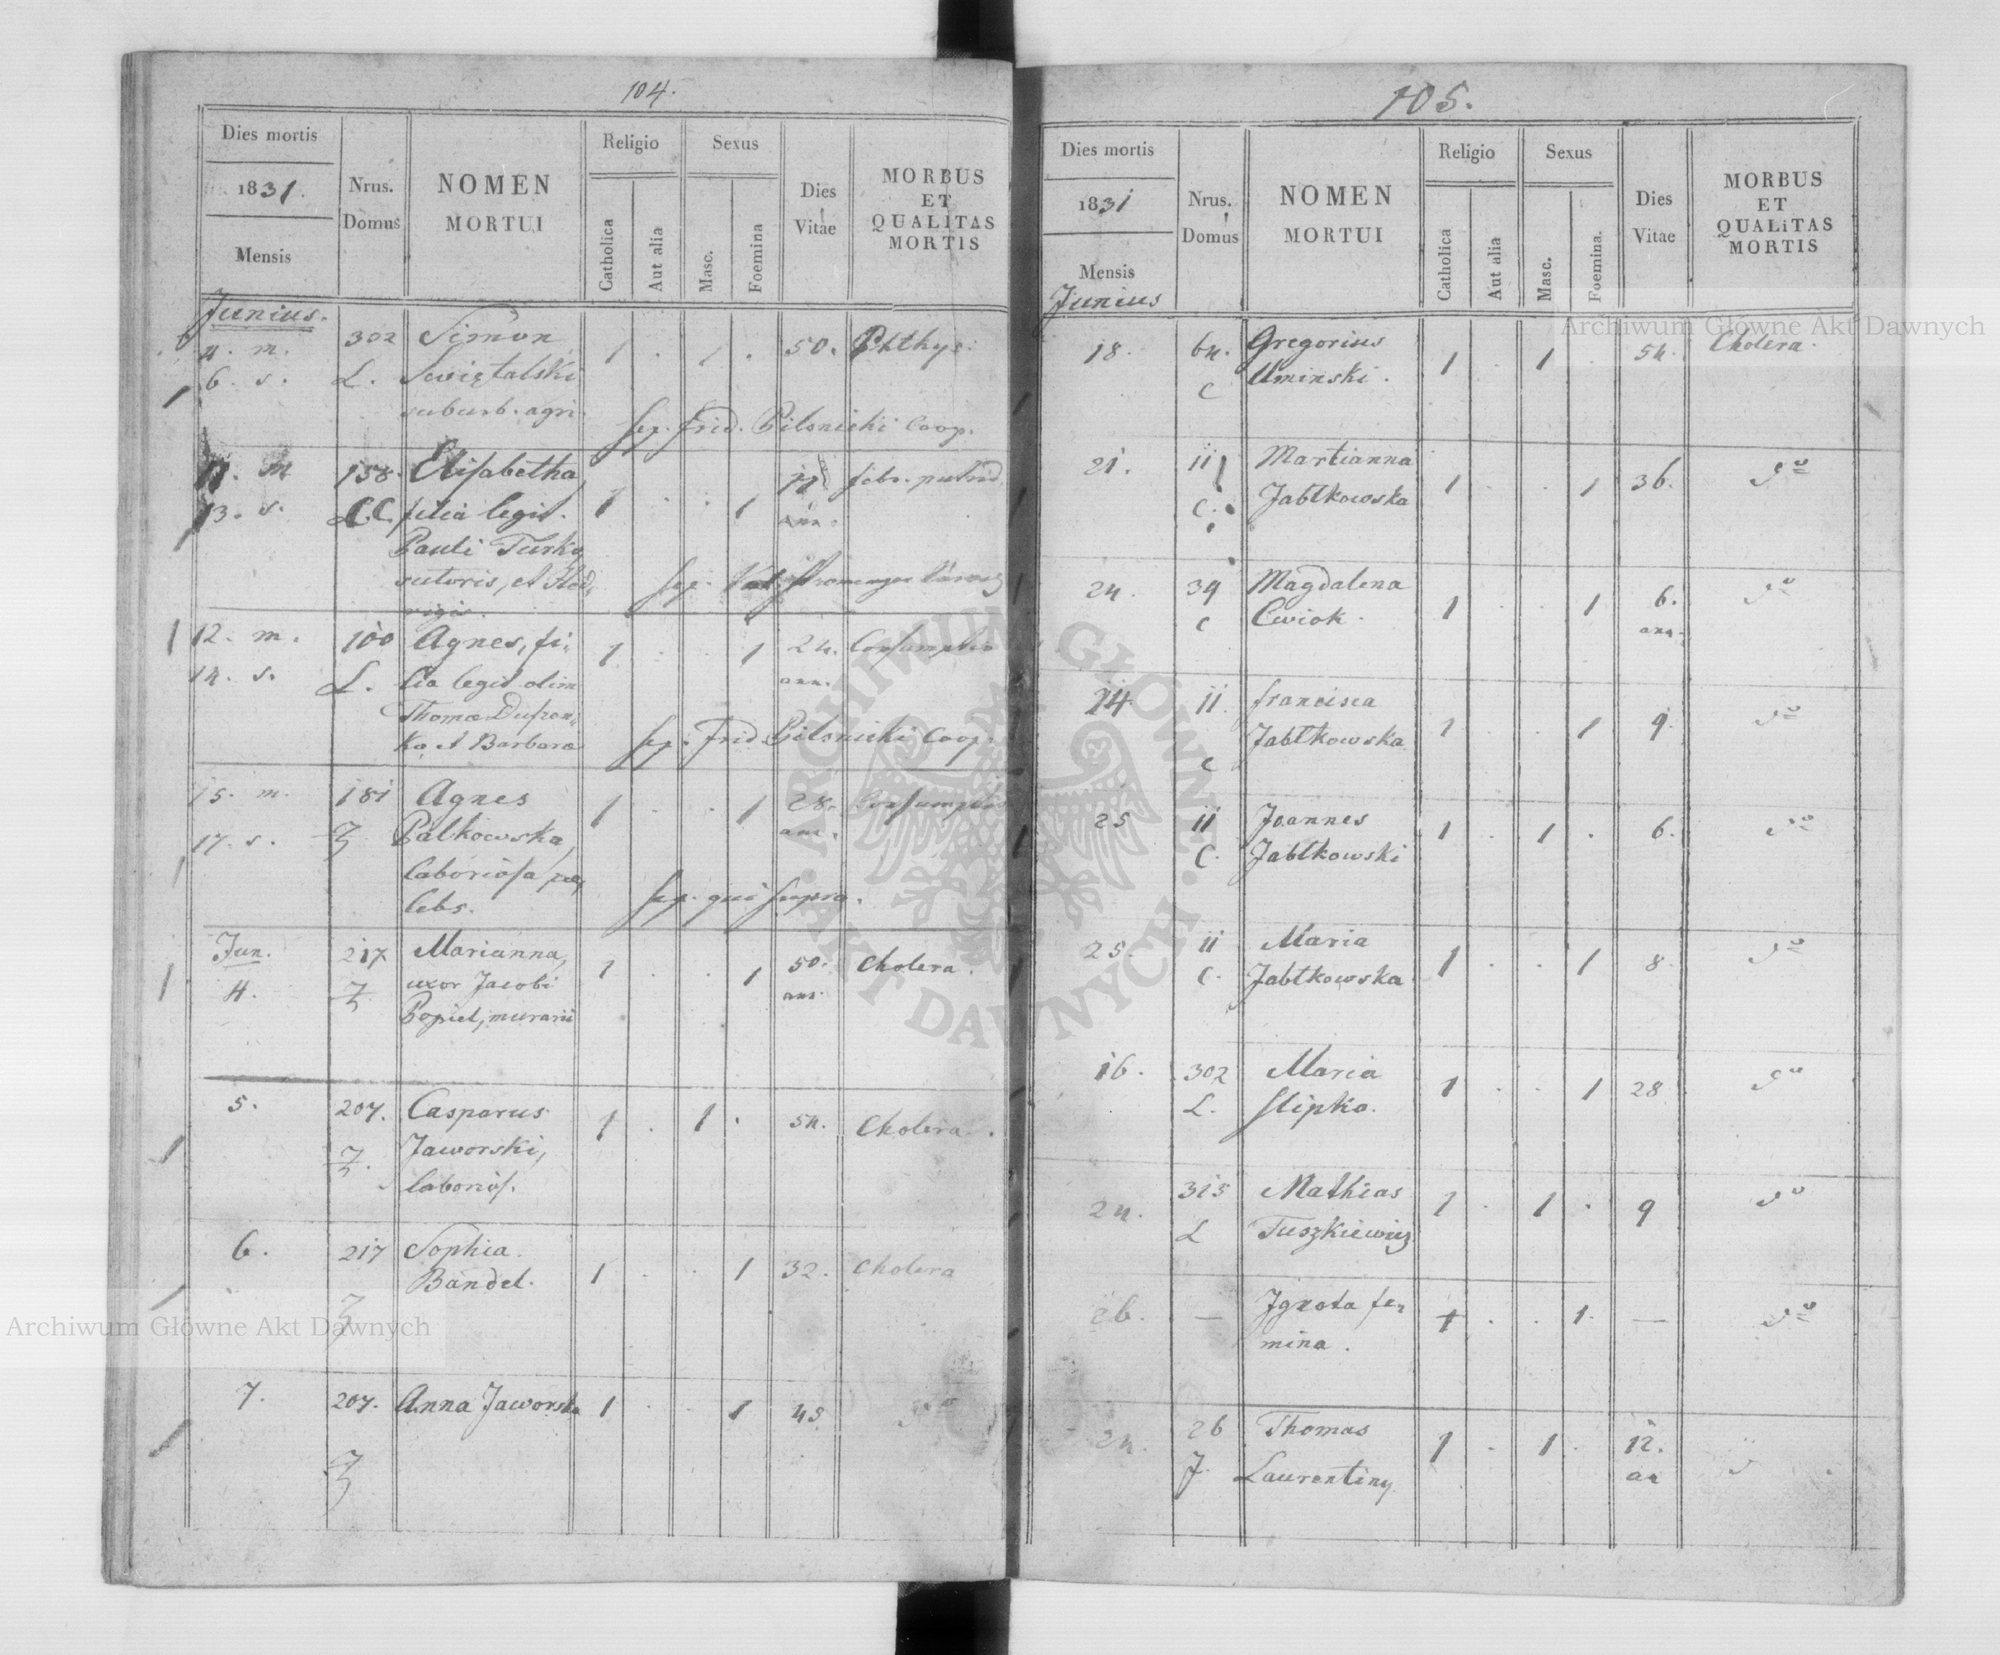 104.
Dies mortis
1831.
Mensis
Nrus.
Domus
NOMEN
MORTUI
Religio
Catholica
Aut alia
Sexus
Masc.
Foemina
Dies
Vitae
MORBUS
ET
QUALITAS
MORTIS
Junius.
4. m. 302 Simon 1 . 1 . 50. Phthys:
6. s. L. Swiętalski
suburb. agri.
sep. Frid. Pilsnicki Coop.
11. m 158. Elisabetha,
13. s. L.C. filia legit. 1 . . 1 ann. febr. putrid
Pauli Turko,
sutoris, et Hed,
vigis.
sep.
12. m. 100 Agnes, fi, 1 . . 1 24. Consumptio
14. s. L. lia legit. olim ann.
Thomæ
et Barbaræ
sep. Frid. Pilsnicki Coop.
15. m. 181 Agnes 1 . . 1 28. Consumptio
17. s. Z Palkowska, ann.
laboriosa, cæ,
lebs.
sep. qui supra.
Jun. 217 Marianna, 1 . . 1 50. Cholera.
4. Z uxor Jacobi ann.
Popiel, murarii
5. 207. Casparus 1 . 1 . 54. Cholera.
Z. Jaworski,
laborios.
6. 217 Sophia 1 . . 1 32. Cholera
Z Bandel.
7. 207. Anna Jaworska 1 . . 1 45
Z
105.
Dies mortis
1831
Mensis
Nrus.
Domus
NOMEN
MORTUI
Religio
Catholica
Aut alia
Sexus
Masc.
Foemina.
Dies
Vitae
MORBUS
ET
QUALITAS
MORTIS
Junius
18. 64. Gregorius 1 . 1 . 54. Cholera.
C Uminski.
21. 11 Martianna 1 . . 1 36. do
C. Jabłkowska
24. 39 Magdalena 1 . . 1 6. do
C Cwiok. ann.
24 11. Francisca 1 . . 1 9. do
C Jabłkowska
25 11 Joannes 1 . 1 . 6. do
C. Jabłkowski
25. 11 Maria 1 . . 1 8. do
C. Jabłkowska
16. 302 Maria 1 . . 1 28 do
L. Slipko.
24. 315 Mathias 1 . 1 . 9 do
L Tuszkiewicz
26. — Jgnota fe, 1 . . 1. — do
mina.
24. 26 Thomas 1 . 1 . 12.
J. Laurentiny an
Archiwum Główne Akt Dawnych
Archiwum Główne Akt Dawnych
ARCHIWUM GŁÓWNE
AKT DAWNYCH